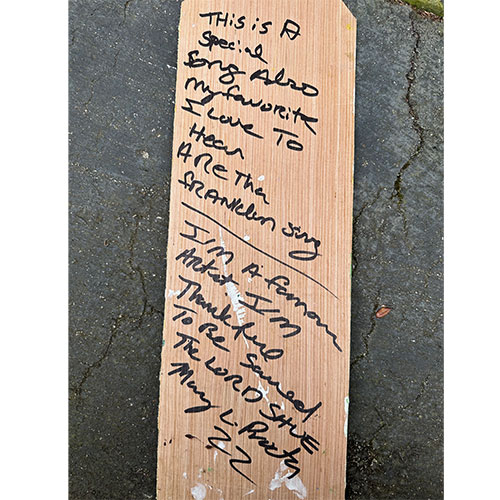 THis is A
Special
Song Also
My favorite
I Love To
Hear
AREtha
FRANKlin Sing
I'M A famous
Artist I'M
Thankful
To Be Saved
The LORD SAVE
Mary L. Proctor
22